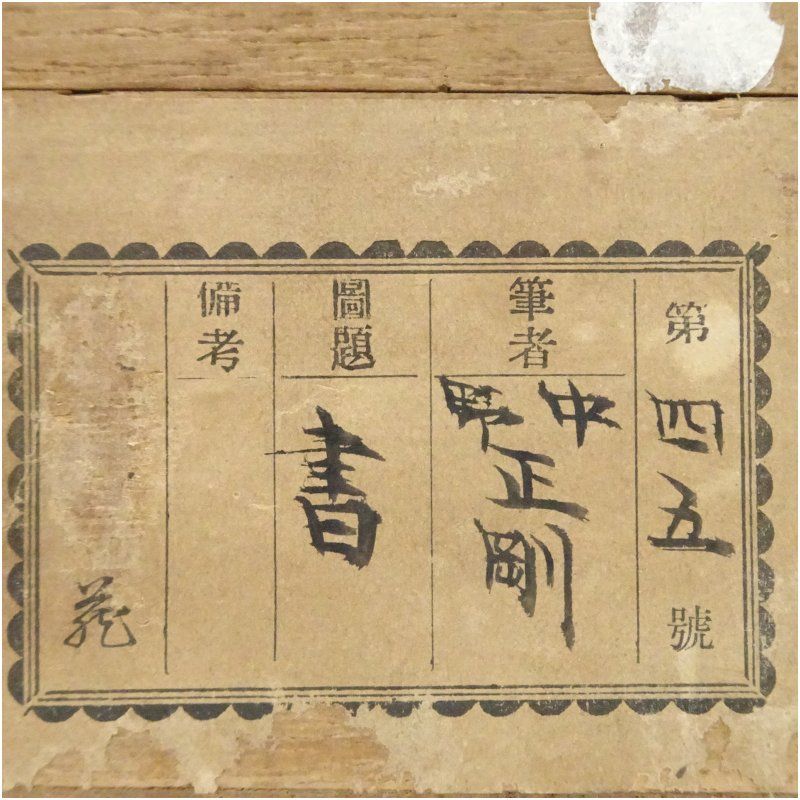 第四五號
筆者
中野正剛
圖題
書
備考
蔵